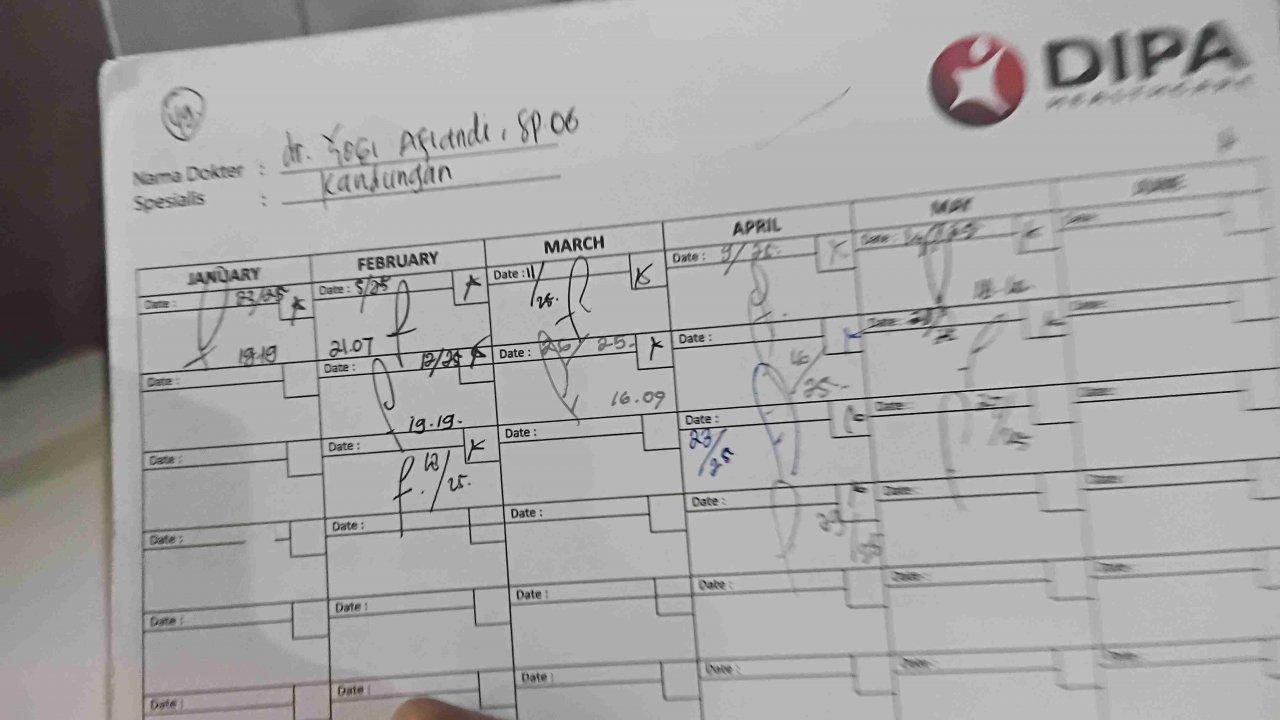 49
DIPA
HEALTHCARE
Nama Dokter : dr. Yogi Aflandi, SP.OG
Spesialis : Kandungan
JANUARY FEBRUARY MARCH APRIL MAY JUNE
Date : 23/25 K Date : 5/25 K Date : 11/25. K Date : 9/25. K Date : K Date :
19.19 21.07
Date : Date : 12/25 K Date : 26/25. K Date : 16/25. Date : Date :
19.19. 16.09
Date : Date : 12/25. K Date : Date : 23/25 Date : Date :
Date : Date : Date : Date : 29/25 Date : Date :
Date : Date : Date : Date : Date : Date :
Date : Date : Date : Date : Date : Date :